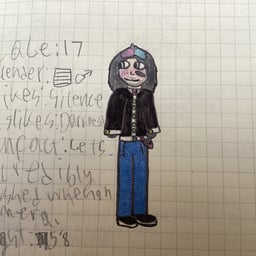 Age:17
Gender: ♂
Likes: Silence
islikes: Darkness
nfact: Gets
credibly
ushed when on
mera.
ght. 5'8